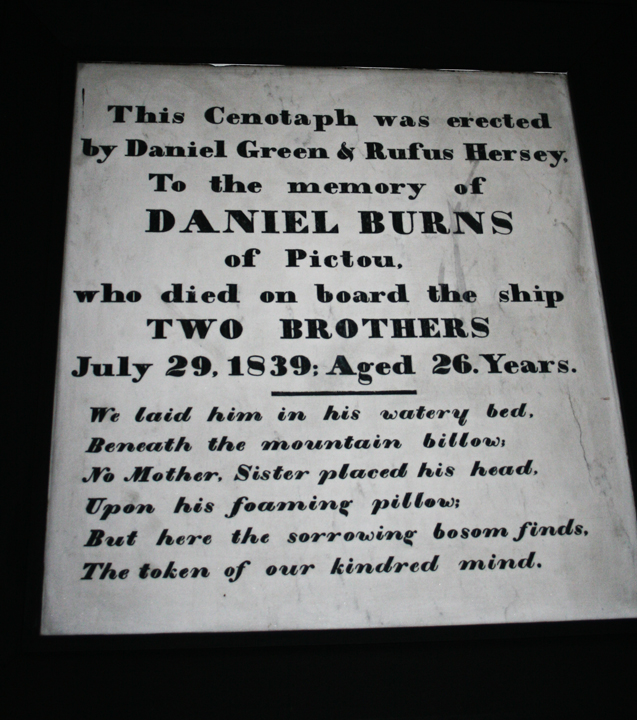 This Cenotaph was erected
by Daniel Green & Rufus Hersey.
To the memory of
DANIEL BURNS
of Pictou,
who died on board the ship
TWO BROTHERS
July 29, 1839: Aged 26. Years.
We laid him in his watery bed,
Beneath the mountain billow;
No Mother, Sister placed his head,
Upon his foaming pillow;
But here the sorrowing bosom finds,
The token of our kindred mind.